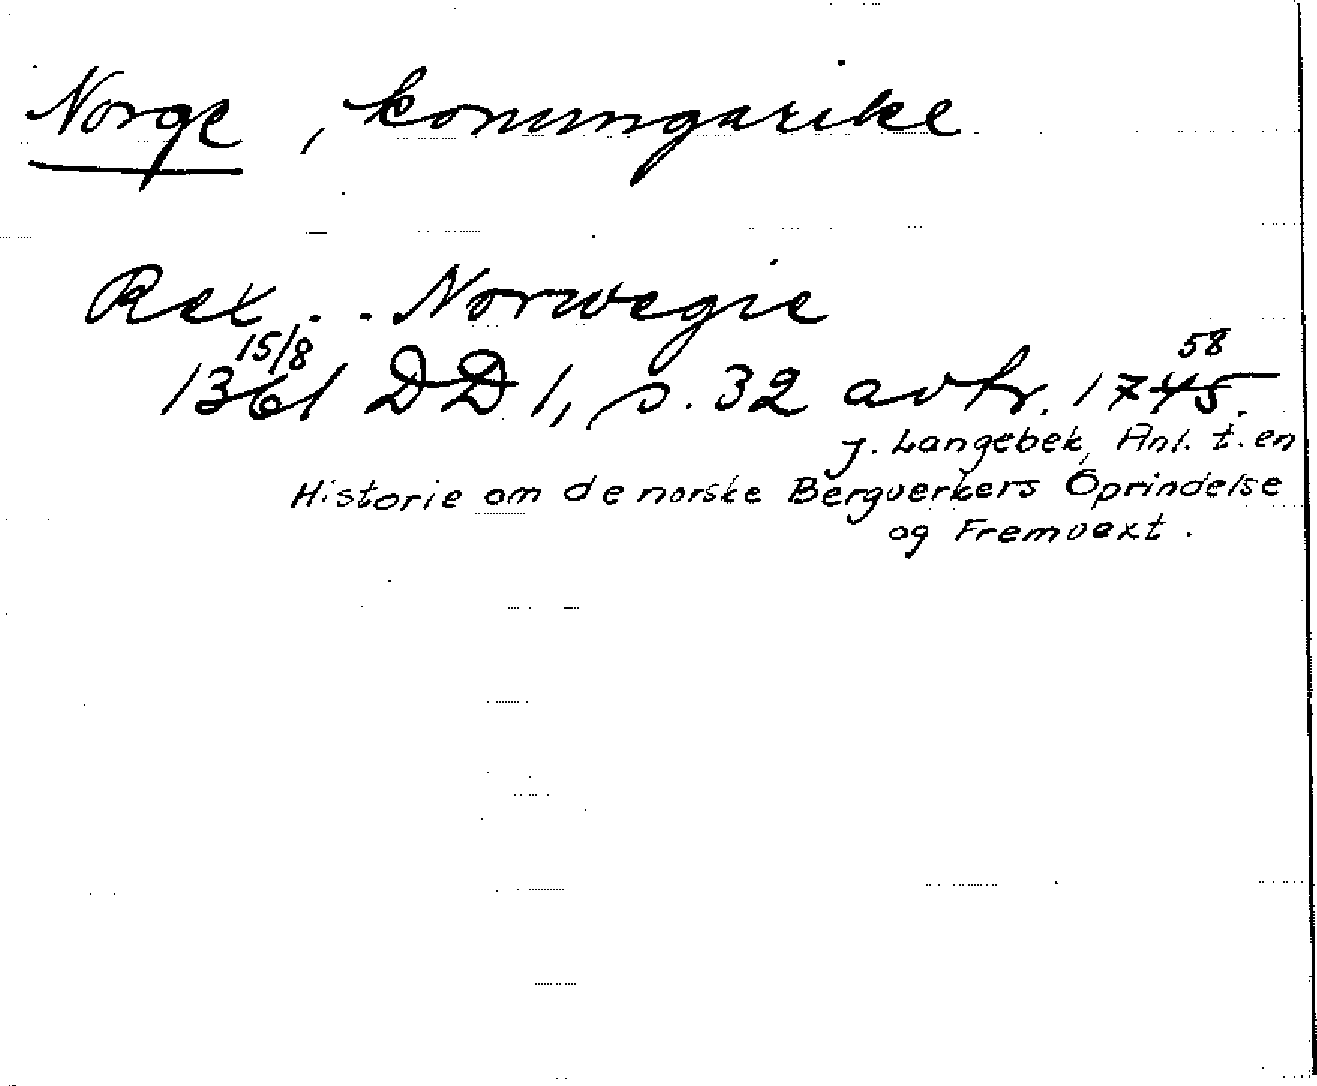 Norge, konungarike
Rex . . Norwegie
15/8 58
1361 DD 1, s. 32 avtr. 1745.
J. Langebek, Anl. t. en
Historie om de norske Bergverkers Oprindelse
og Fremvext.